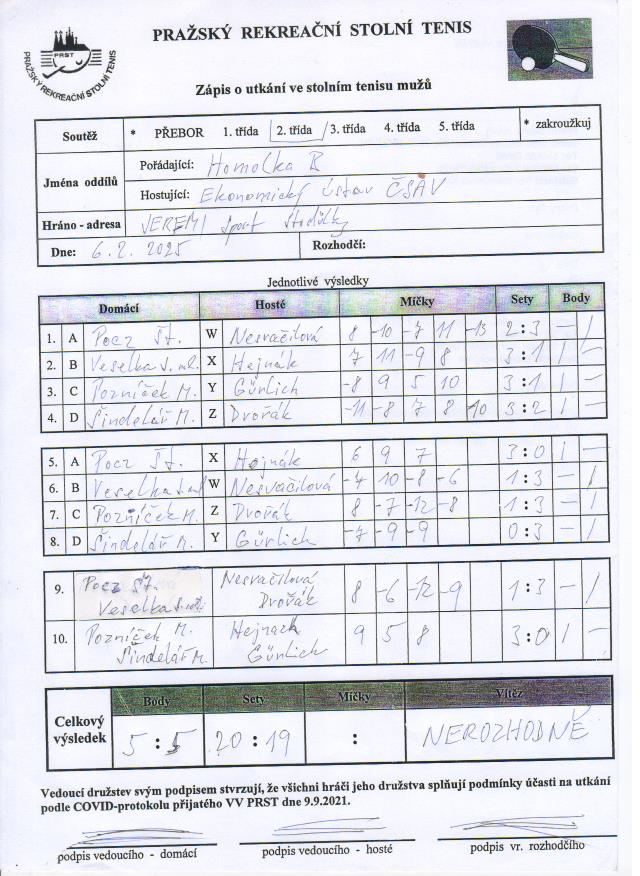 PRAŽSKÝ REKREAČNÍ STOLNÍ TENIS
PRST
PRAŽSKÝ REKREAČNÍ STOLNÍ TENIS
Zápis o utkání ve stolním tenisu mužů
Soutěž * PŘEBOR 1. třída 2. třída 3. třída 4. třída 5. třída * zakroužkuj
Jména oddílů
Pořádající: Homolka B
Hostující: Ekonomický ústav ČSAV
Hráno - adresa JEREMI Sport Stodůlky
Dne: 6.2. 2025 Rozhodčí:
Jednotlivé výsledky
Domácí Hosté Míčky Sety Body
1. A Pocz Št. W Nesvačilová 8 -10 -7 11 -13 2:3 - 1
2. B Veselka J. ml. X Hejnák 7 11 -9 8 3:1 1 -
3. C Pozníček M. Y Gürlich -8 9 5 10 3:1 1 -
4. D Šindelář M. Z Dvořák -11 -8 7 8 10 3:2 1 -
5. A Pocz Št. X Hejnák 6 9 7 3:0 1 -
6. B Veselka J. ml W Nesvačilová -4 10 -8 -6 1:3 - 1
7. C Pozníček M. Z Dvořák 8 -7 -12 -8 1:3 - 1
8. D Šindelář M. Y Gürlich -7 -9 -9 0:3 - 1
9. Pocz Št. Nesvačilová 8 -6 -12 -9 1:3 - 1
Veselka J. ml. Dvořák
10. Pozníček M. Hejnák 9 5 8 3:0 1 -
Šindelář M. Gürlich
Celkový výsledek
Body Sety Míčky Vítěz
5:5 20:19 : NEROZHODNĚ
Vedoucí družstev svým podpisem stvrzují, že všichni hráči jeho družstva splňují podmínky účasti na utkání
podle COVID-protokolu přijatého VV PRST dne 9.9.2021.
podpis vedoucího - domácí podpis vedoucího - hosté podpis vr. rozhodčího